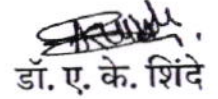 डॉ. ए. के. शिंदे